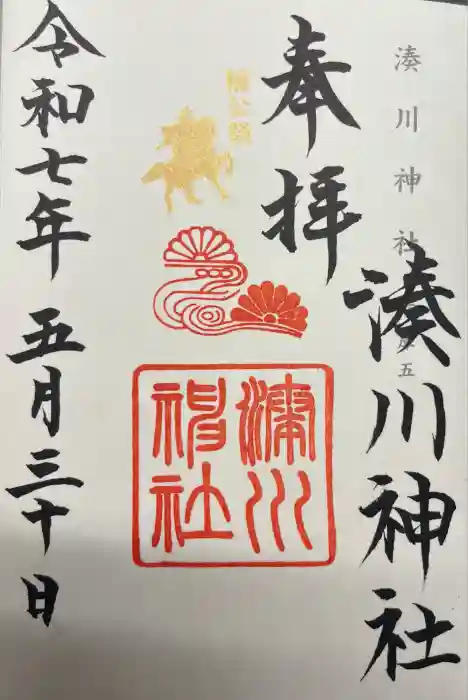 湊川神社
五
奉拝
湊川神社
楠公祭
湊川
神社
令和七年五月三十日